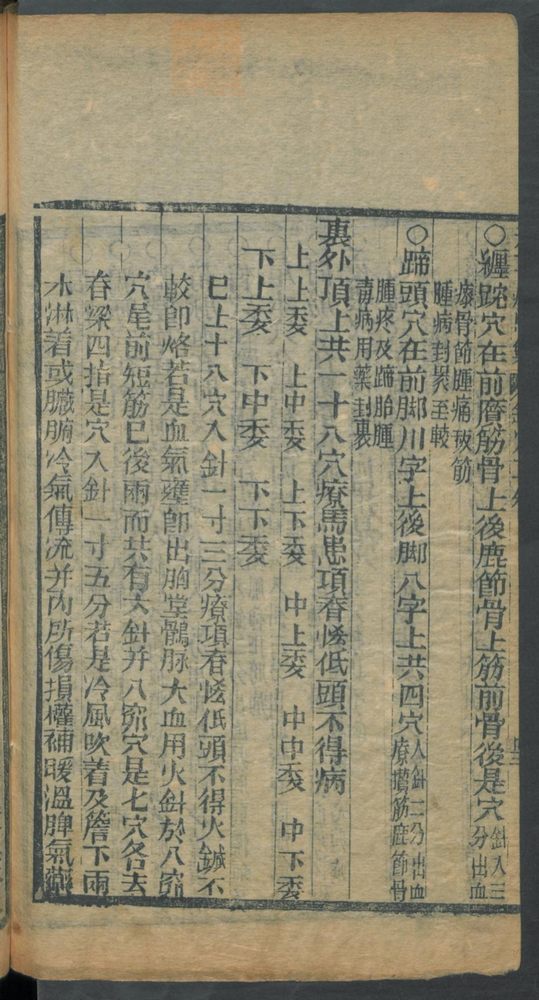 ○纏踠穴在前膺筋骨上後鹿節骨上筋前骨後是穴 針入三分出血
療骨節腫痛破筋腫病封裹至較
○蹄頭穴在前脚川字上後脚八字上共四穴 入針二分出血療攢筋鹿節骨
腫疼及蹄胎腫毒病用藥封裹
裏外項上共一十八穴療馬患項脊㤰低頭不得病
上上委 上中委 上下委 中上委 中中委 中下委
下上委 下中委 下下委
巳上十八穴入針一寸三分療項脊㤰低頭不得火鍼不
較即烙若是血氣壅即出胸堂鶻脉大血用火針於八窌
穴尾前短筋巳後兩而共有六針并八窌穴是七穴各去
脊梁四指是穴入針一寸五分若是冷風吹着及簷下雨
水淋着或臟腑冷氣傳流并內所傷損權補暖溫脾氣藥